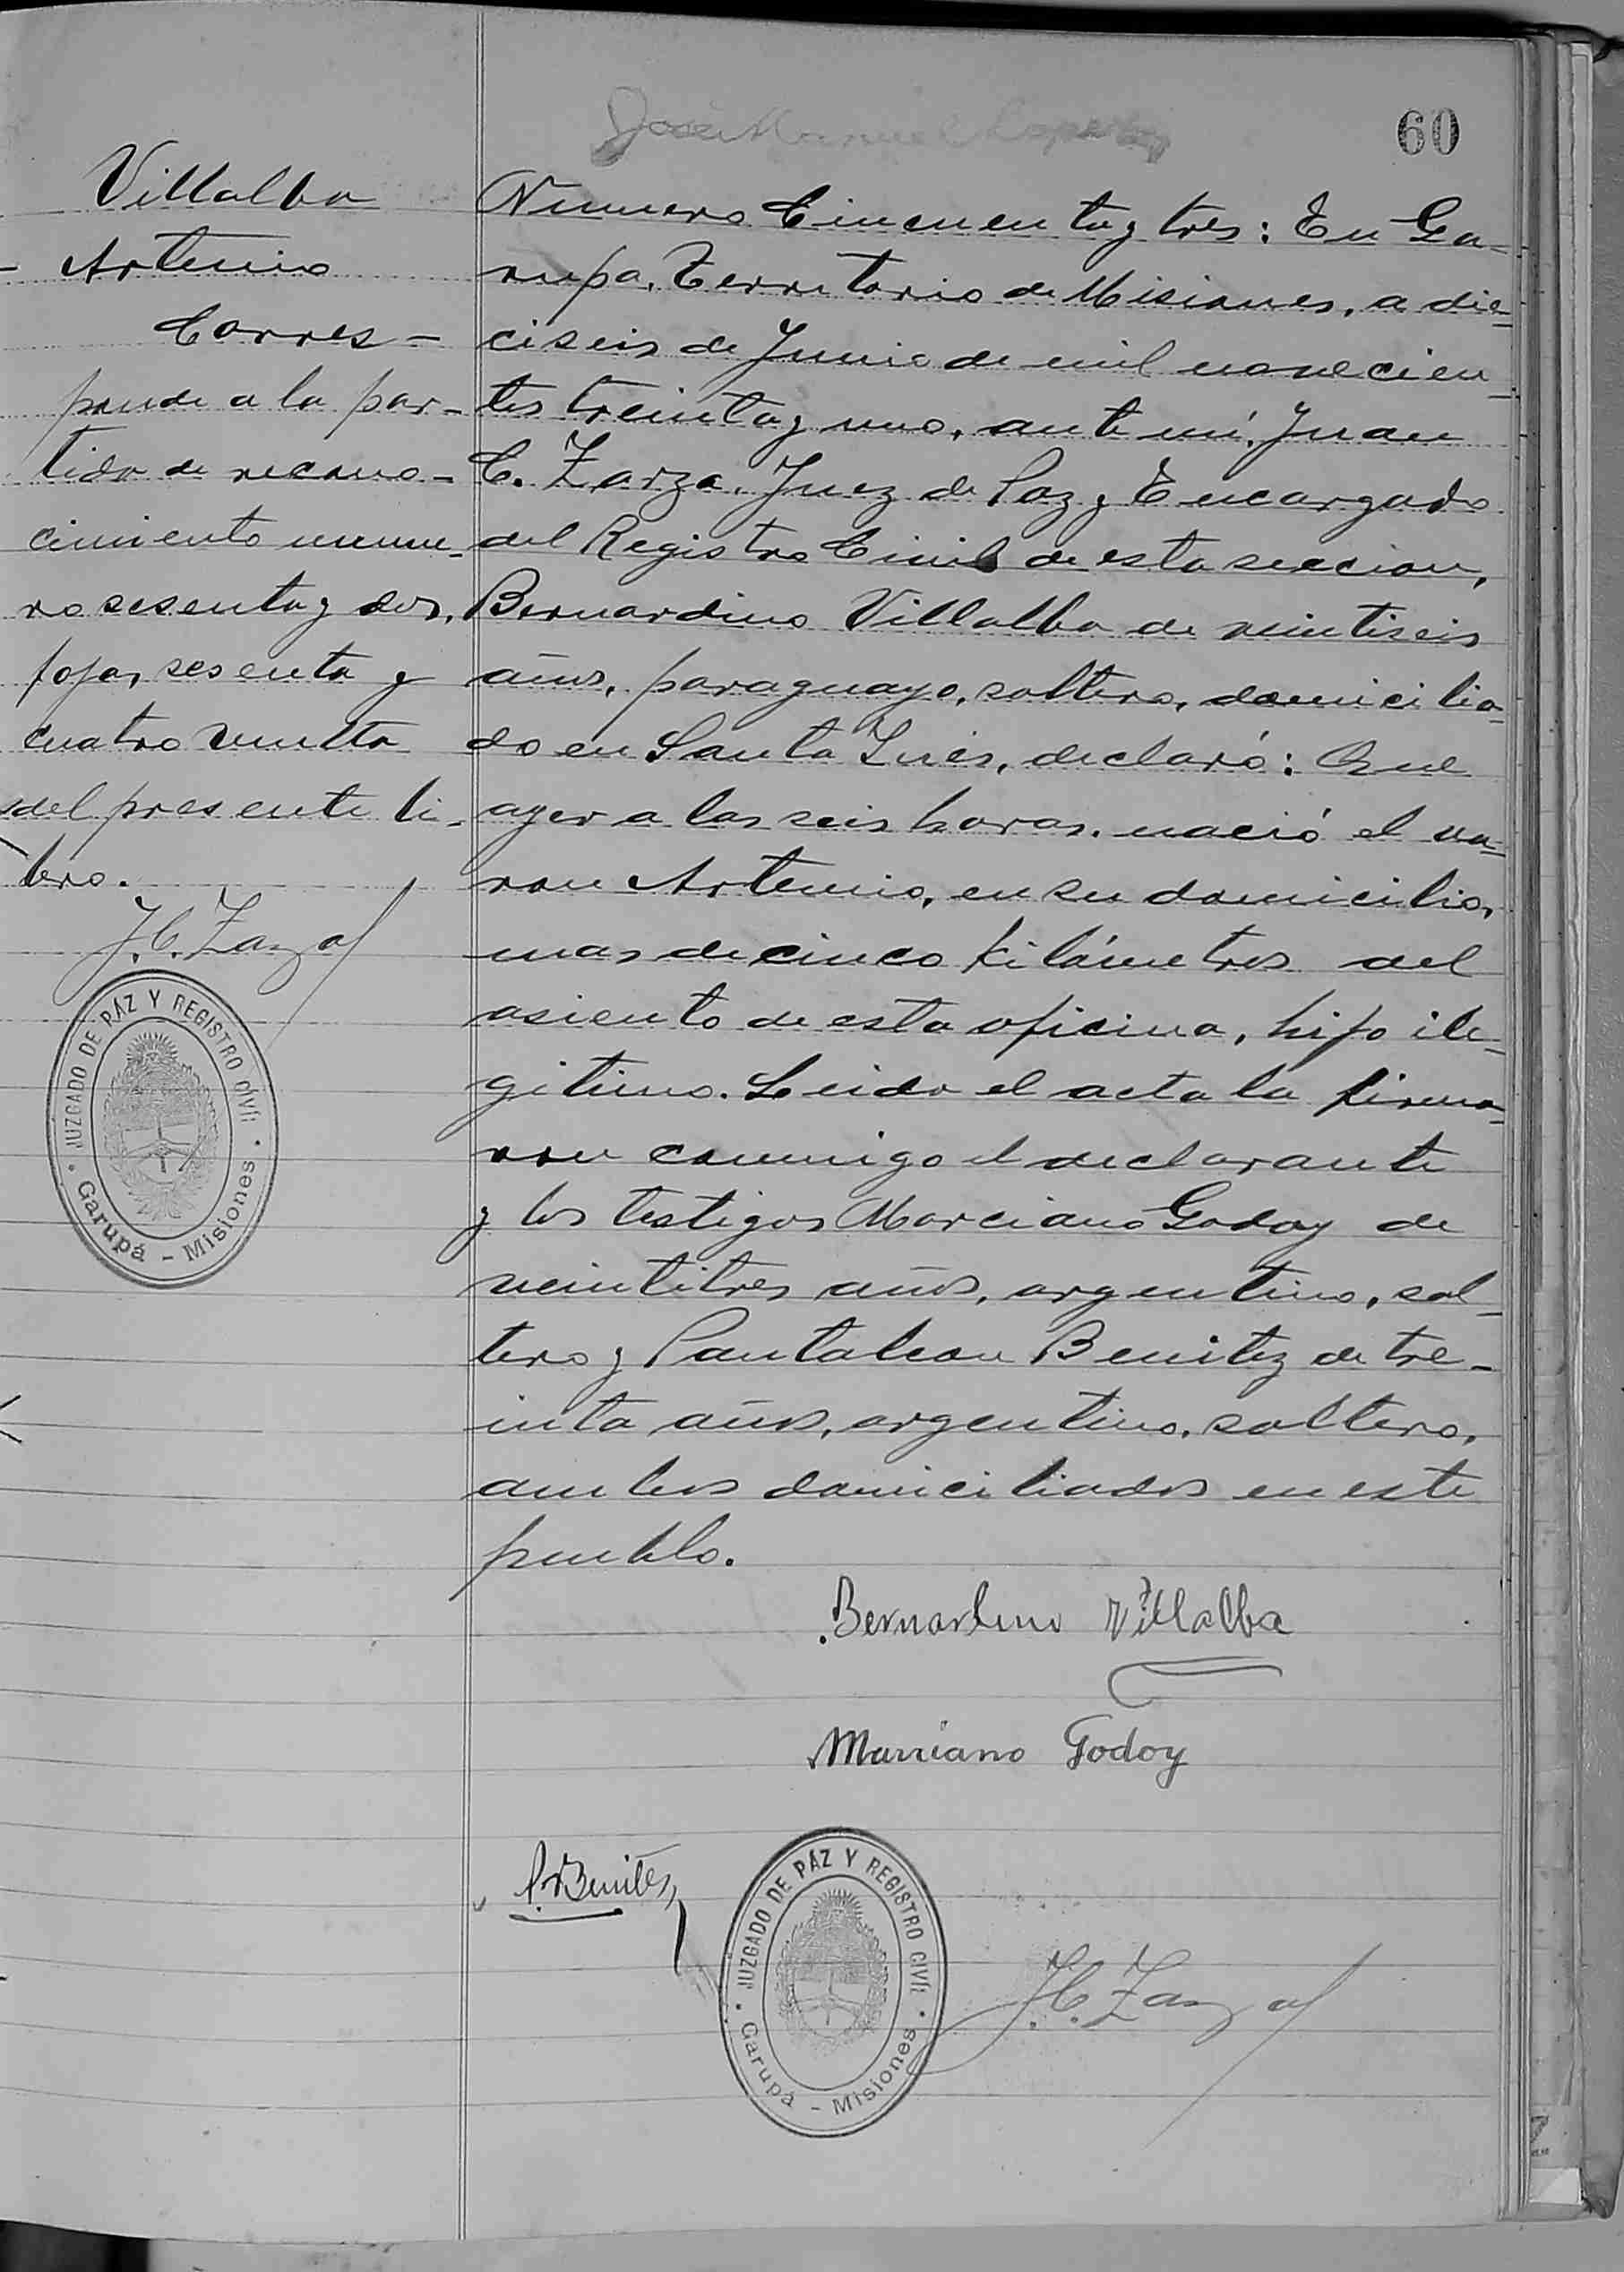 60
José Manuel
Villalba
Artemio
Corres-
ponde a la par-
tida de recono-
cimiento nume-
ro sesenta y dos,
fojas sesenta y
cuatro vuelta
del presente li-
bro.
J.C. Zarza
JUZGADO DE PÁZ Y REGISTRO CIVIL
Garupá - Misiones
Numero Cincuenta y tres: En Ga-
rupa, Territorio de Misiones, a die-
ciseis de Junio de mil novecien-
tos treinta y uno, ante mí, Juan
C. Zarza, Juez de Paz y Encargado
del Registro Civil de esta seccion,
Bernardino Villalba de veintiseis
años, paraguayo, soltero, domicilia-
do en Santa Inés, declaró: Que
ayer a las seis horas, nació el va-
ron Artemio, en su domicilio,
mas de cinco kilómetros del
asiento de esta oficina, hijo ile-
gitimo. Leida el acta la firma-
ron conmigo el declarante
y los testigos Marciano Godoy de
veintitres años, argentino, sol-
tero y Pantaleon Benitez de tre-
inta años, argentino, soltero,
ambos domiciliados en este
pueblo.
Bernardino Villalba
Marciano Godoy
P. Benites
JUZGADO DE PÁZ Y REGISTRO CIVIL
Garupá - Misiones
J.C. Zarza